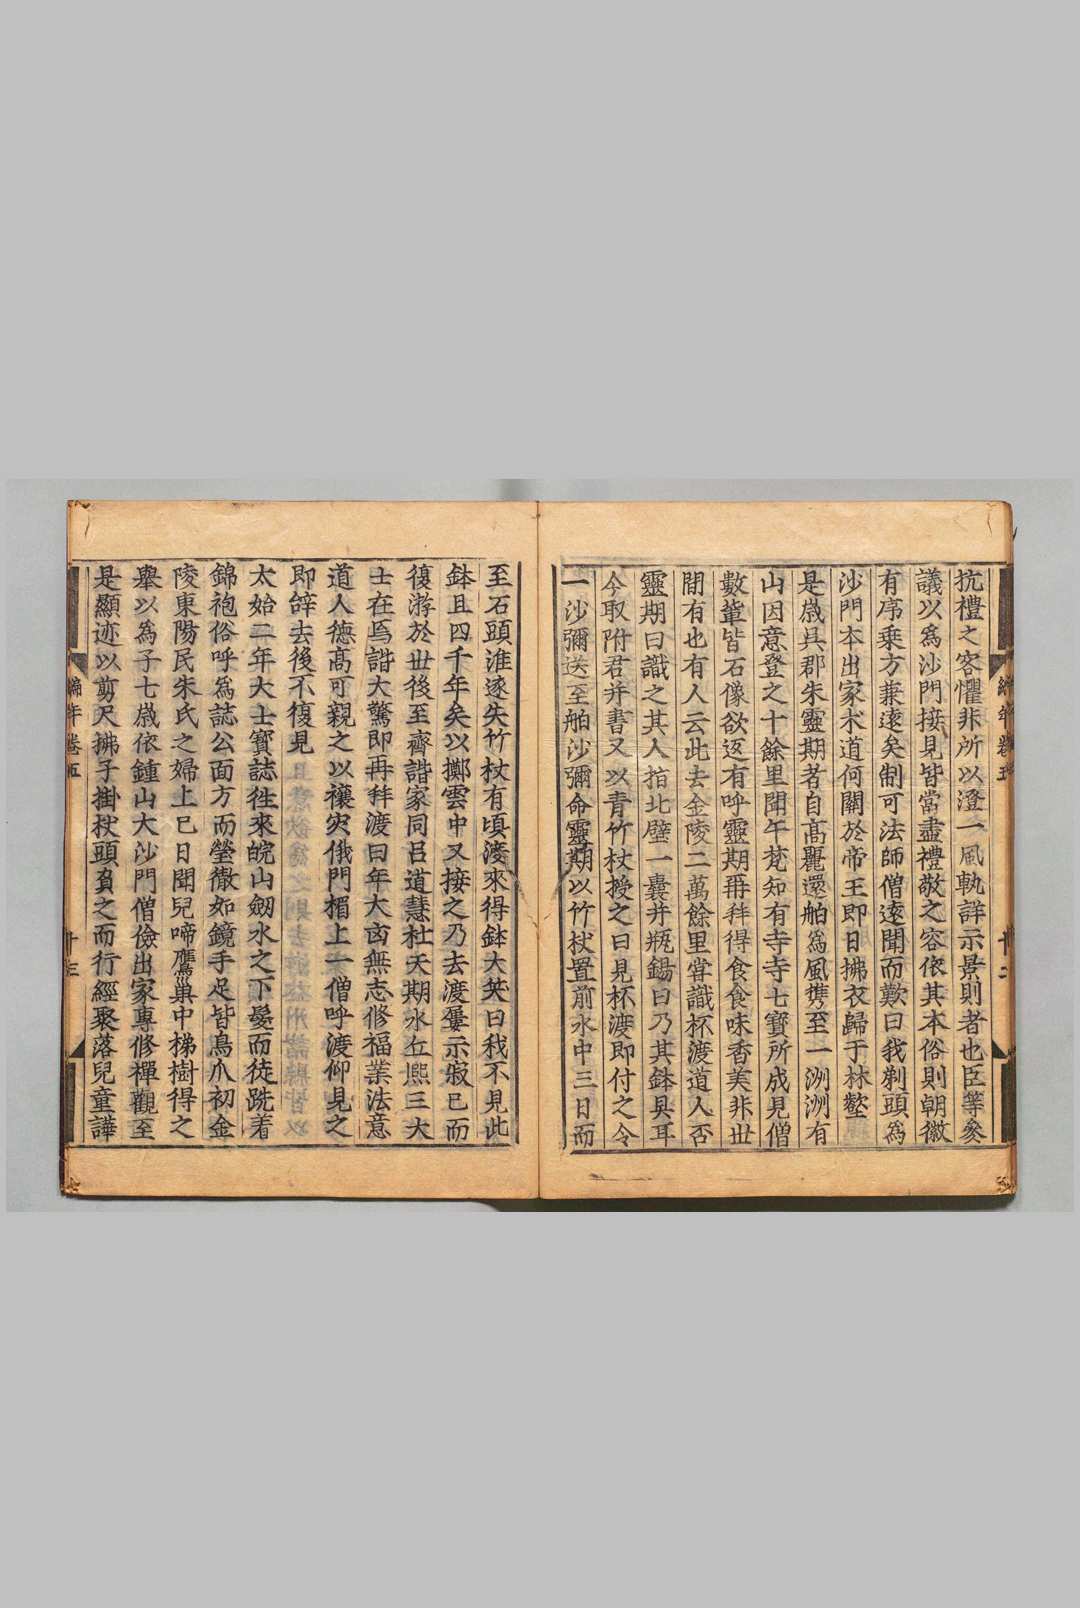 抗禮之容懼非所以澄一風軌詳示景則者也臣等參
議以爲沙門接見皆當盡禮敬之容依其本俗則朝徽
有序乗方兼遠矣制可法師僧遠聞而歎曰我剃頭爲
沙門本出家求道何關於帝王即日拂衣歸于林壑
是歳具郡朱靈期者自髙麗還舶爲風擕至一洲洲有
山因意登之十餘里聞午梵知有寺寺七寳所成見僧
數軰皆石像欲返有呼靈期爯拜得食食味香美非丗
間有也有人云此去金陵二萬餘里甞識杯渡道人否
靈期曰識之其人指北壁一囊并瓶錫曰乃其鉢具耳
今取附君并書又以青竹杖授之曰見杯渡即付之令
一沙彌送至舶沙彌命靈期以竹杖置前水中三日而
至石頭淮遂失竹杖有頃渡來得鉢大笑曰我不見此
鉢且四千年矣以擲雲中又接之乃去渡屢示寂已而
復游於丗後至齊諧家同吕道慧杜天期水丘熈三大
士在焉諧大驚即再拜渡曰年大㐫無志修福業法意
道人德髙可親之以禳灾俄門楣上一僧呼渡仰見之
即辝去後不復見
太始二年大士寳誌徃來皖山劒水之下髮而徒跣着
錦袍俗呼爲誌公面方而瑩徹如鏡手足皆鳥爪初金
陵東陽民朱氏之婦上巳日聞兒啼鷹巢中梯樹得之
舉以爲子七歳依鍾山大沙門僧儉出家專修禪觀至
是顯迹以剪尺拂子掛杖頭負之而行經聚落兒童譁
編年卷五
十三